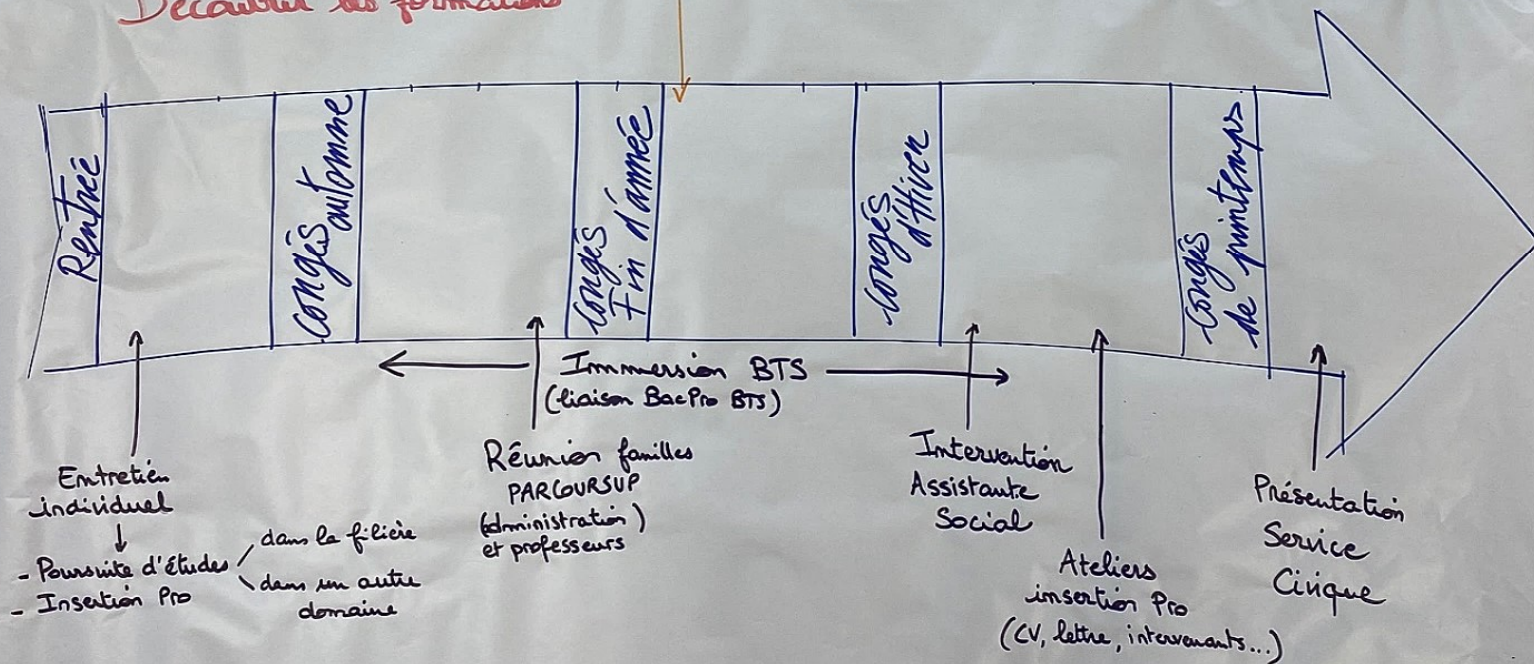 Découvrir les formations
Rentrée
Congés
automne
Congés
Fin d'année
Congés
d'Hiver
Congés
de printemps
Immersion BTS
(liaison Bac Pro BTS)
Entretien
individuel
- Poursuite d'études
dans la filière
dans un autre
domaine
- Insertion Pro
Réunion familles
PARCOURSUP
(administration)
et professeurs
Intervention
Assistante
Social
Ateliers
insertion Pro
(CV, lettre, intervenants...)
Présentation
Service
Civique